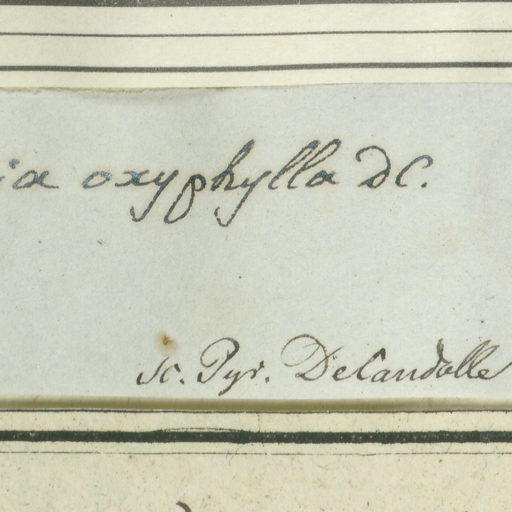 ia oxyphylla DC.
sc. Pyr. DeCandolle